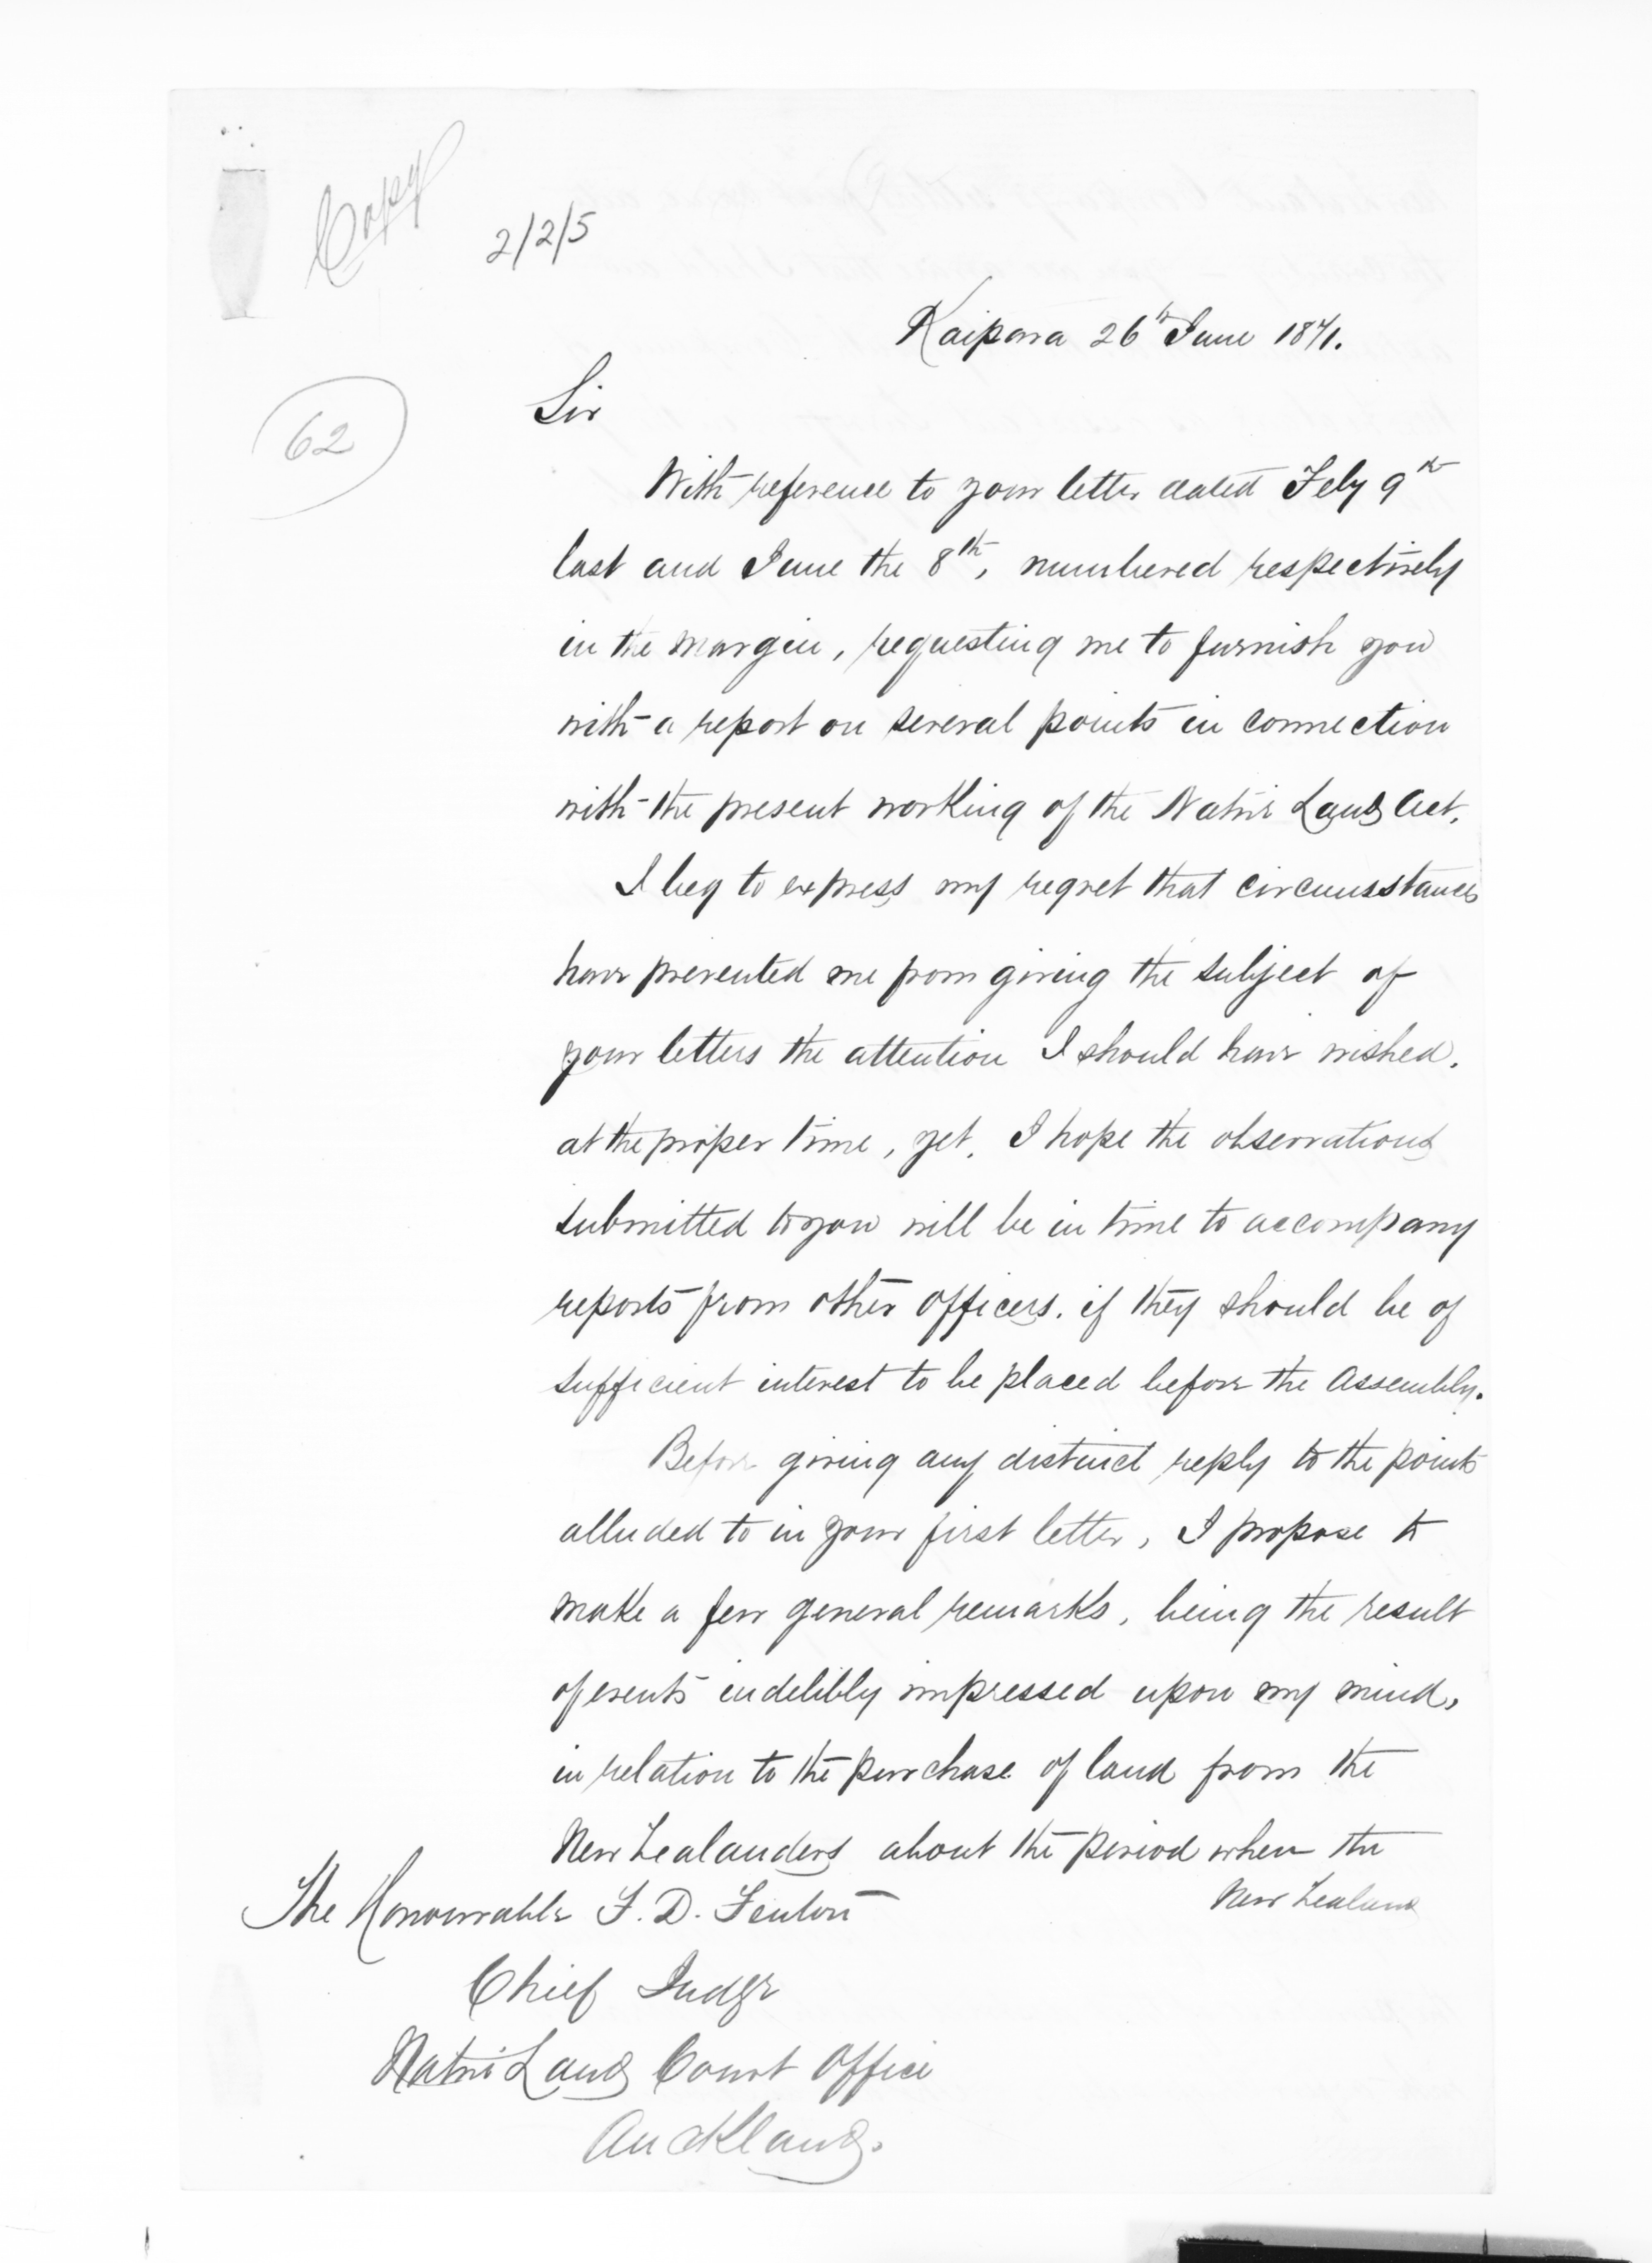 Copy
2/2/5
Kaipara 26th June 1871.
62
Sir
With reference to your letter dated Feby 9th
last and June the 8th, numbered respectively
in the margin, requesting me to furnish you
with a report on several points in connection
with the present working of the Native Lands Act.
I beg to express my regret that circumstances
have prevented me from giving the subject of
your letters the attention I should have wished.
at the proper time, yet, I hope the observations
submitted to you will be in time to accompany
reports from other officers. if they should be of
sufficient interest to be placed before the Assembly.
Before giving any distinct reply to the points
alluded to in your first letter, I propose to
make a few general remarks, being the result
of events indelibly impressed upon my mind,
in relation to the purchase of land from the
New Zealanders about the period when the
New Zealand
The Honourable F. D. Fenton
Chief Judge
Native Lands Court Office
Auckland.